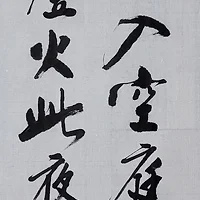 入空庭
火此夜